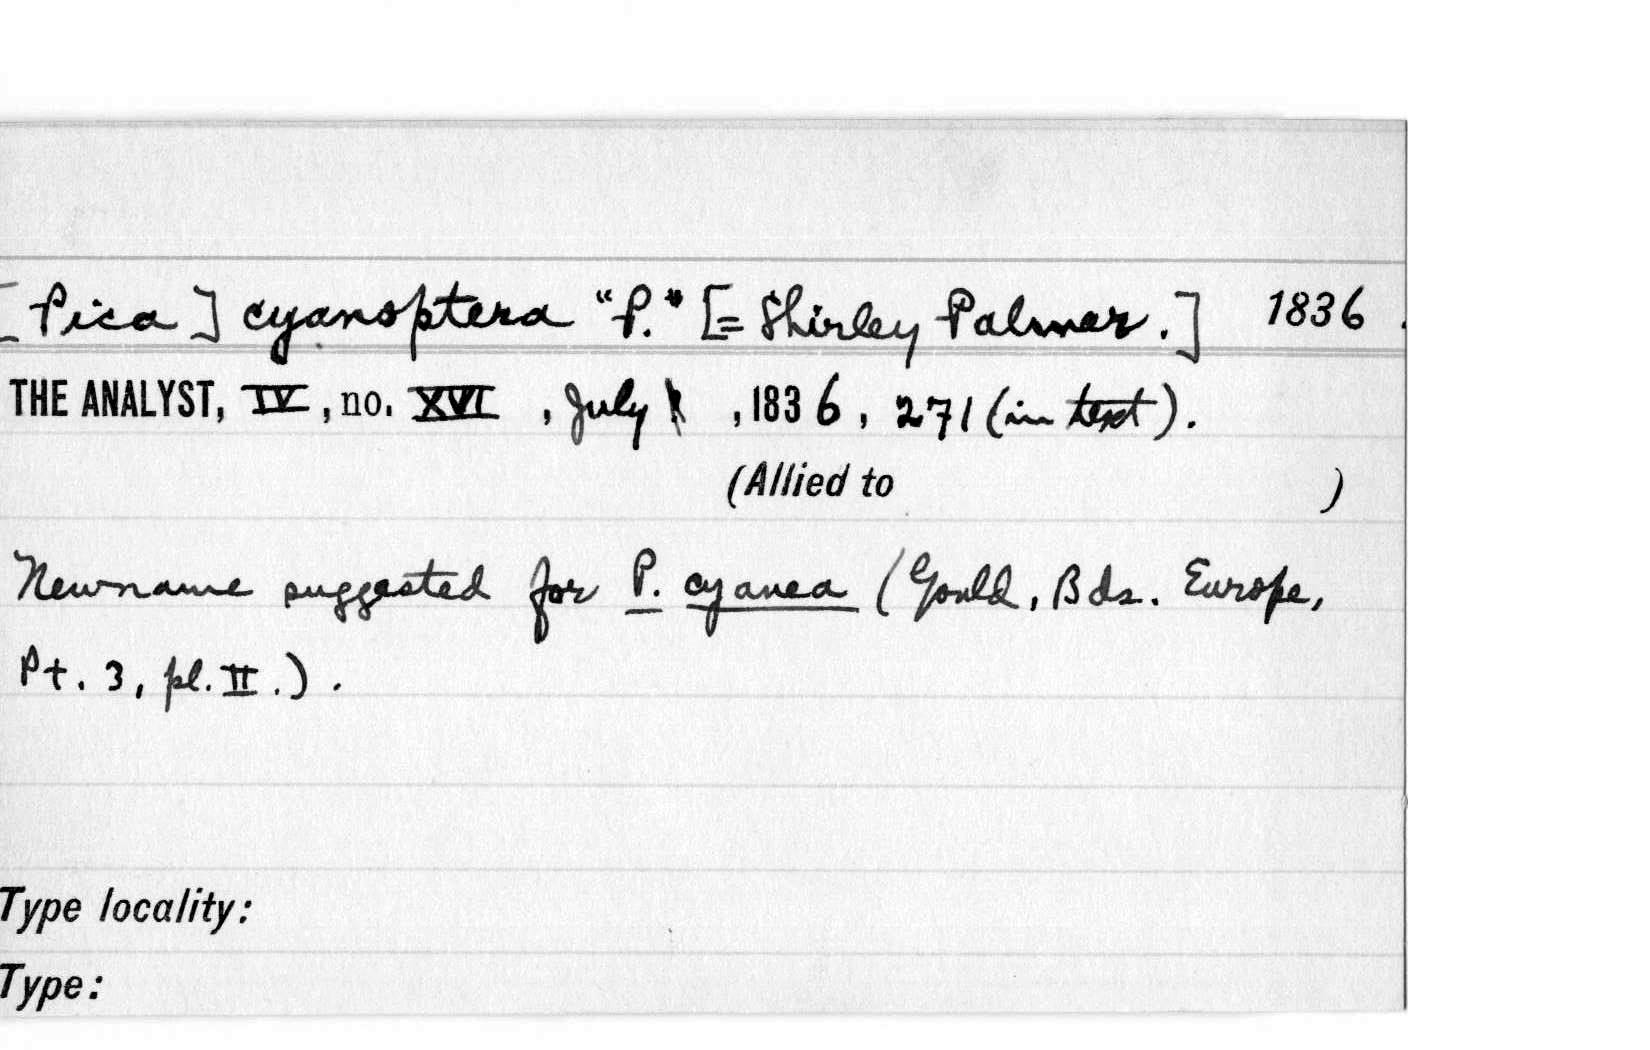 [Pica] cyanoptera "P." [= Shirley Palmer.] 1836.
THE ANALYST, IV, no. XVI, July, 1836, 271 (in text).
(Allied to )
New name suggested for P. cyanea (Gould, Bds. Europe,
Pt. 3, pl. II.).
Type locality:
Type: